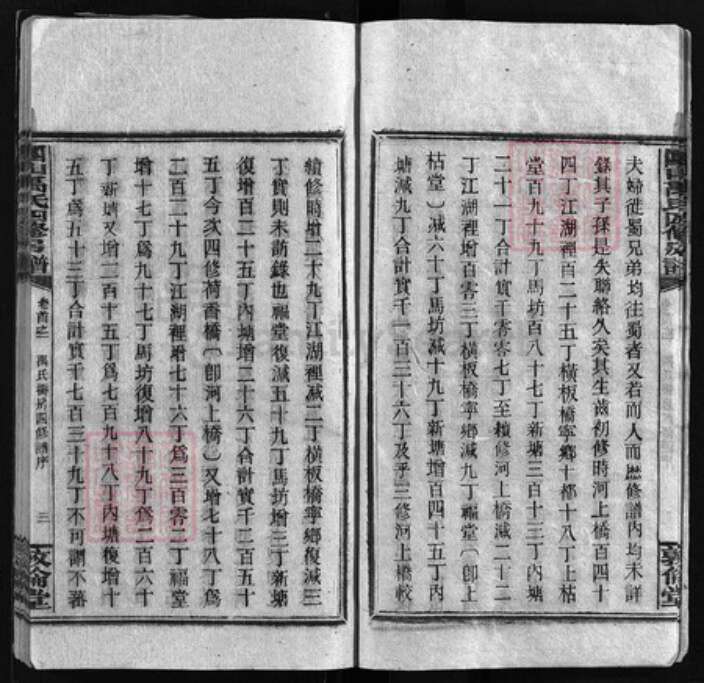 夫婦徙蜀兄弟均往蜀者又若而人而歷修譜內均未詳
錄其子孫是失聯絡久矣其生齒初修時河上橋百四十
四丁江湖裡百二十五丁橫板橋寧鄉十都十八丁上枯
堂百九十九丁馬坊百八十七丁新塘三百十三丁內塘
二十一丁合計實千零零七丁至續修河上橋減二十二
丁江湖裡增百零三丁橫板橋寧鄉減九丁福堂(卽上
枯堂)減六十丁馬坊減十九丁新塘增百四十五丁內
塘減九丁合計實千一百三十六丁及乎三修河上橋較
續修時增二十九丁江湖裡減二丁橫板橋寧鄉復減三
丁實則未訪錄也福堂復減五十九丁馬坊增三丁新塘
復增百二十五丁內塘增二十六丁合計實千二百五十
五丁今次四修荷香橋(卽河上橋)又增七十八丁爲
二百二十九丁江湖裡增七十六丁爲三百零二丁福堂
增十七丁爲九十七丁馬坊復增八十九丁爲二百六十
丁新塘又增二百十五丁爲七百九十八丁內塘復增十
五丁爲五十三丁合計實千七百三十九丁不可謂不蕃
卷首之一
四修譜序
三
敦倫堂
敦倫堂